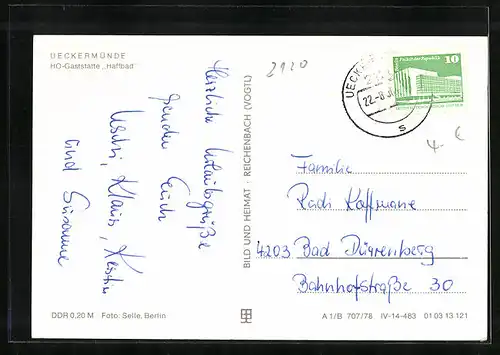 UECKERMÜNDE
HO-Gaststätte „Haffbad"
Herzliche Urlaubsgrüße
senden Euch
Uschi, Klaus, Kerstin
und Susanne
BILD UND HEIMAT · REICHENBACH (VOGTL)
2120
UECKER
22-8.
s
10
4- €
Familie
Radi Kaffmane
4203 Bad Dürrenberg
Bahnhofstraße 30
DDR 0,20 M Foto: Selle, Berlin
A 1/B 707/78 IV-14-483 01 03 13 121